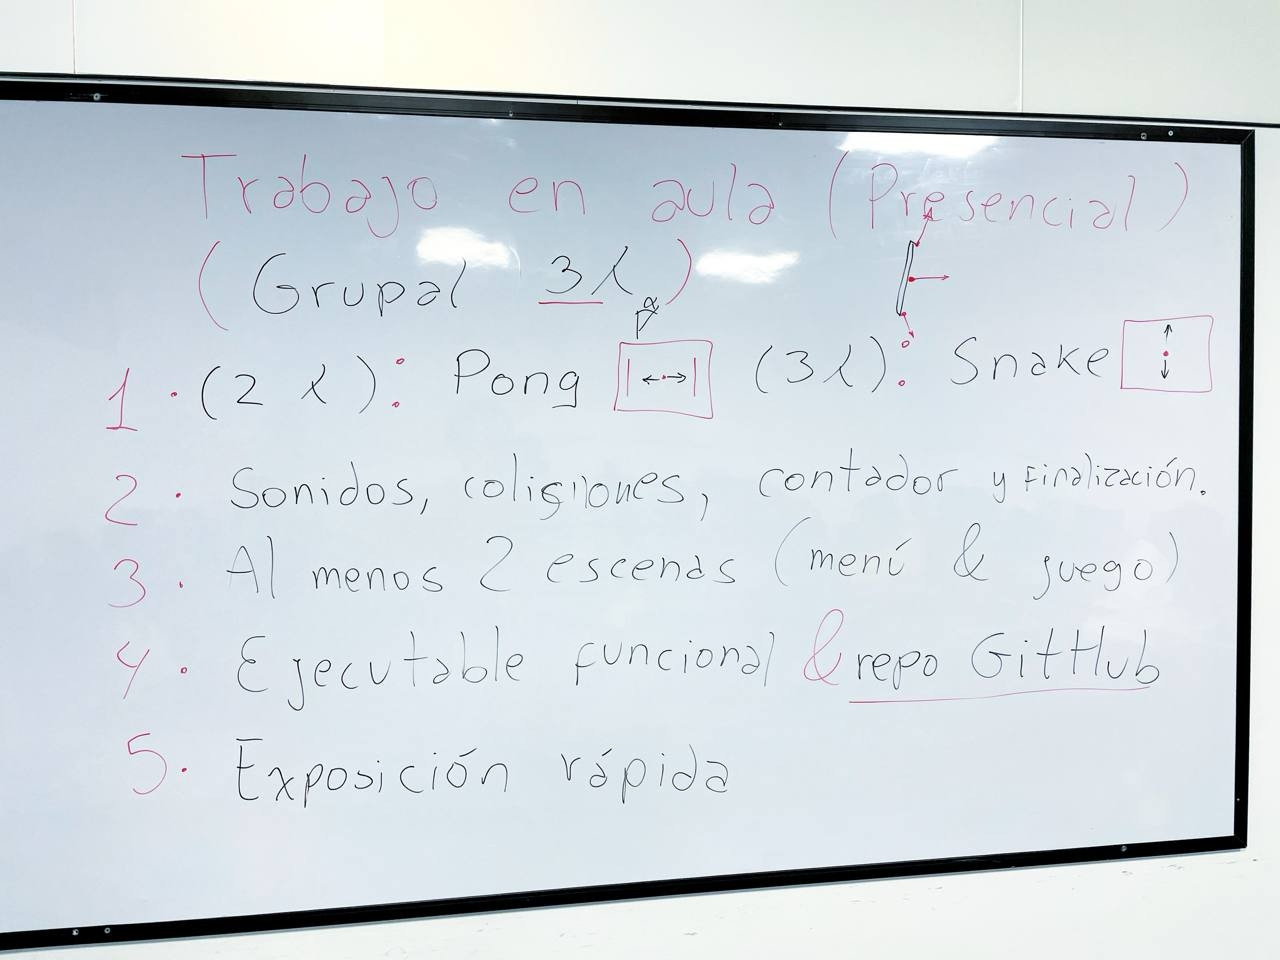 Trabajo en aula (Presencial)
(Grupal 3λ)
α
1. (2 λ): Pong (3λ): Snake
2. Sonidos, colisiones, contador y finalización.
3. Al menos 2 escenas (menú & juego)
4. Ejecutable funcional & repo GitHub
5. Exposición rápida